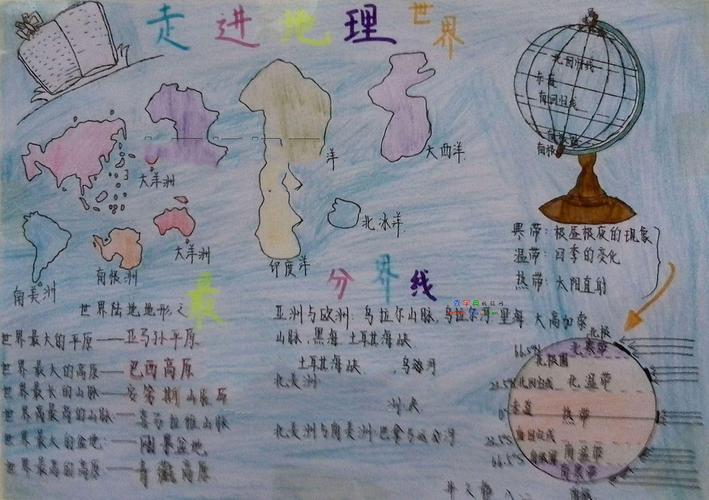 走进地理世界
北回归线
赤道
南回归线
南极
洋
大西洋
大洋洲
大洋洲
北冰洋
南极洲
南美洲
印度洋
寒带：极昼极夜的现象
温带：四季的变化
热带：太阳直射
世界陆地地形之最
世界最大的平原——亚马孙平原
世界最大的高原——巴西高原
世界最长的山脉——安第斯山脉
世界最高的山脉——喜马拉雅山脉
世界最大的盆地——刚果盆地
世界最高的高原——青藏高原
分界线
亚洲与欧洲：乌拉尔山脉,乌拉尔河 里海 大高加索
山脉,黑海 土耳其海峡
土耳其海峡
北美洲
北美洲与南美洲:巴拿马运河
北极
66.5°N 北寒带
北极圈
23.5°N 北回归线 北温带
0° 赤道 热带
23.5°S 南回归线
南温带
66.5°S 南极圈
南寒带